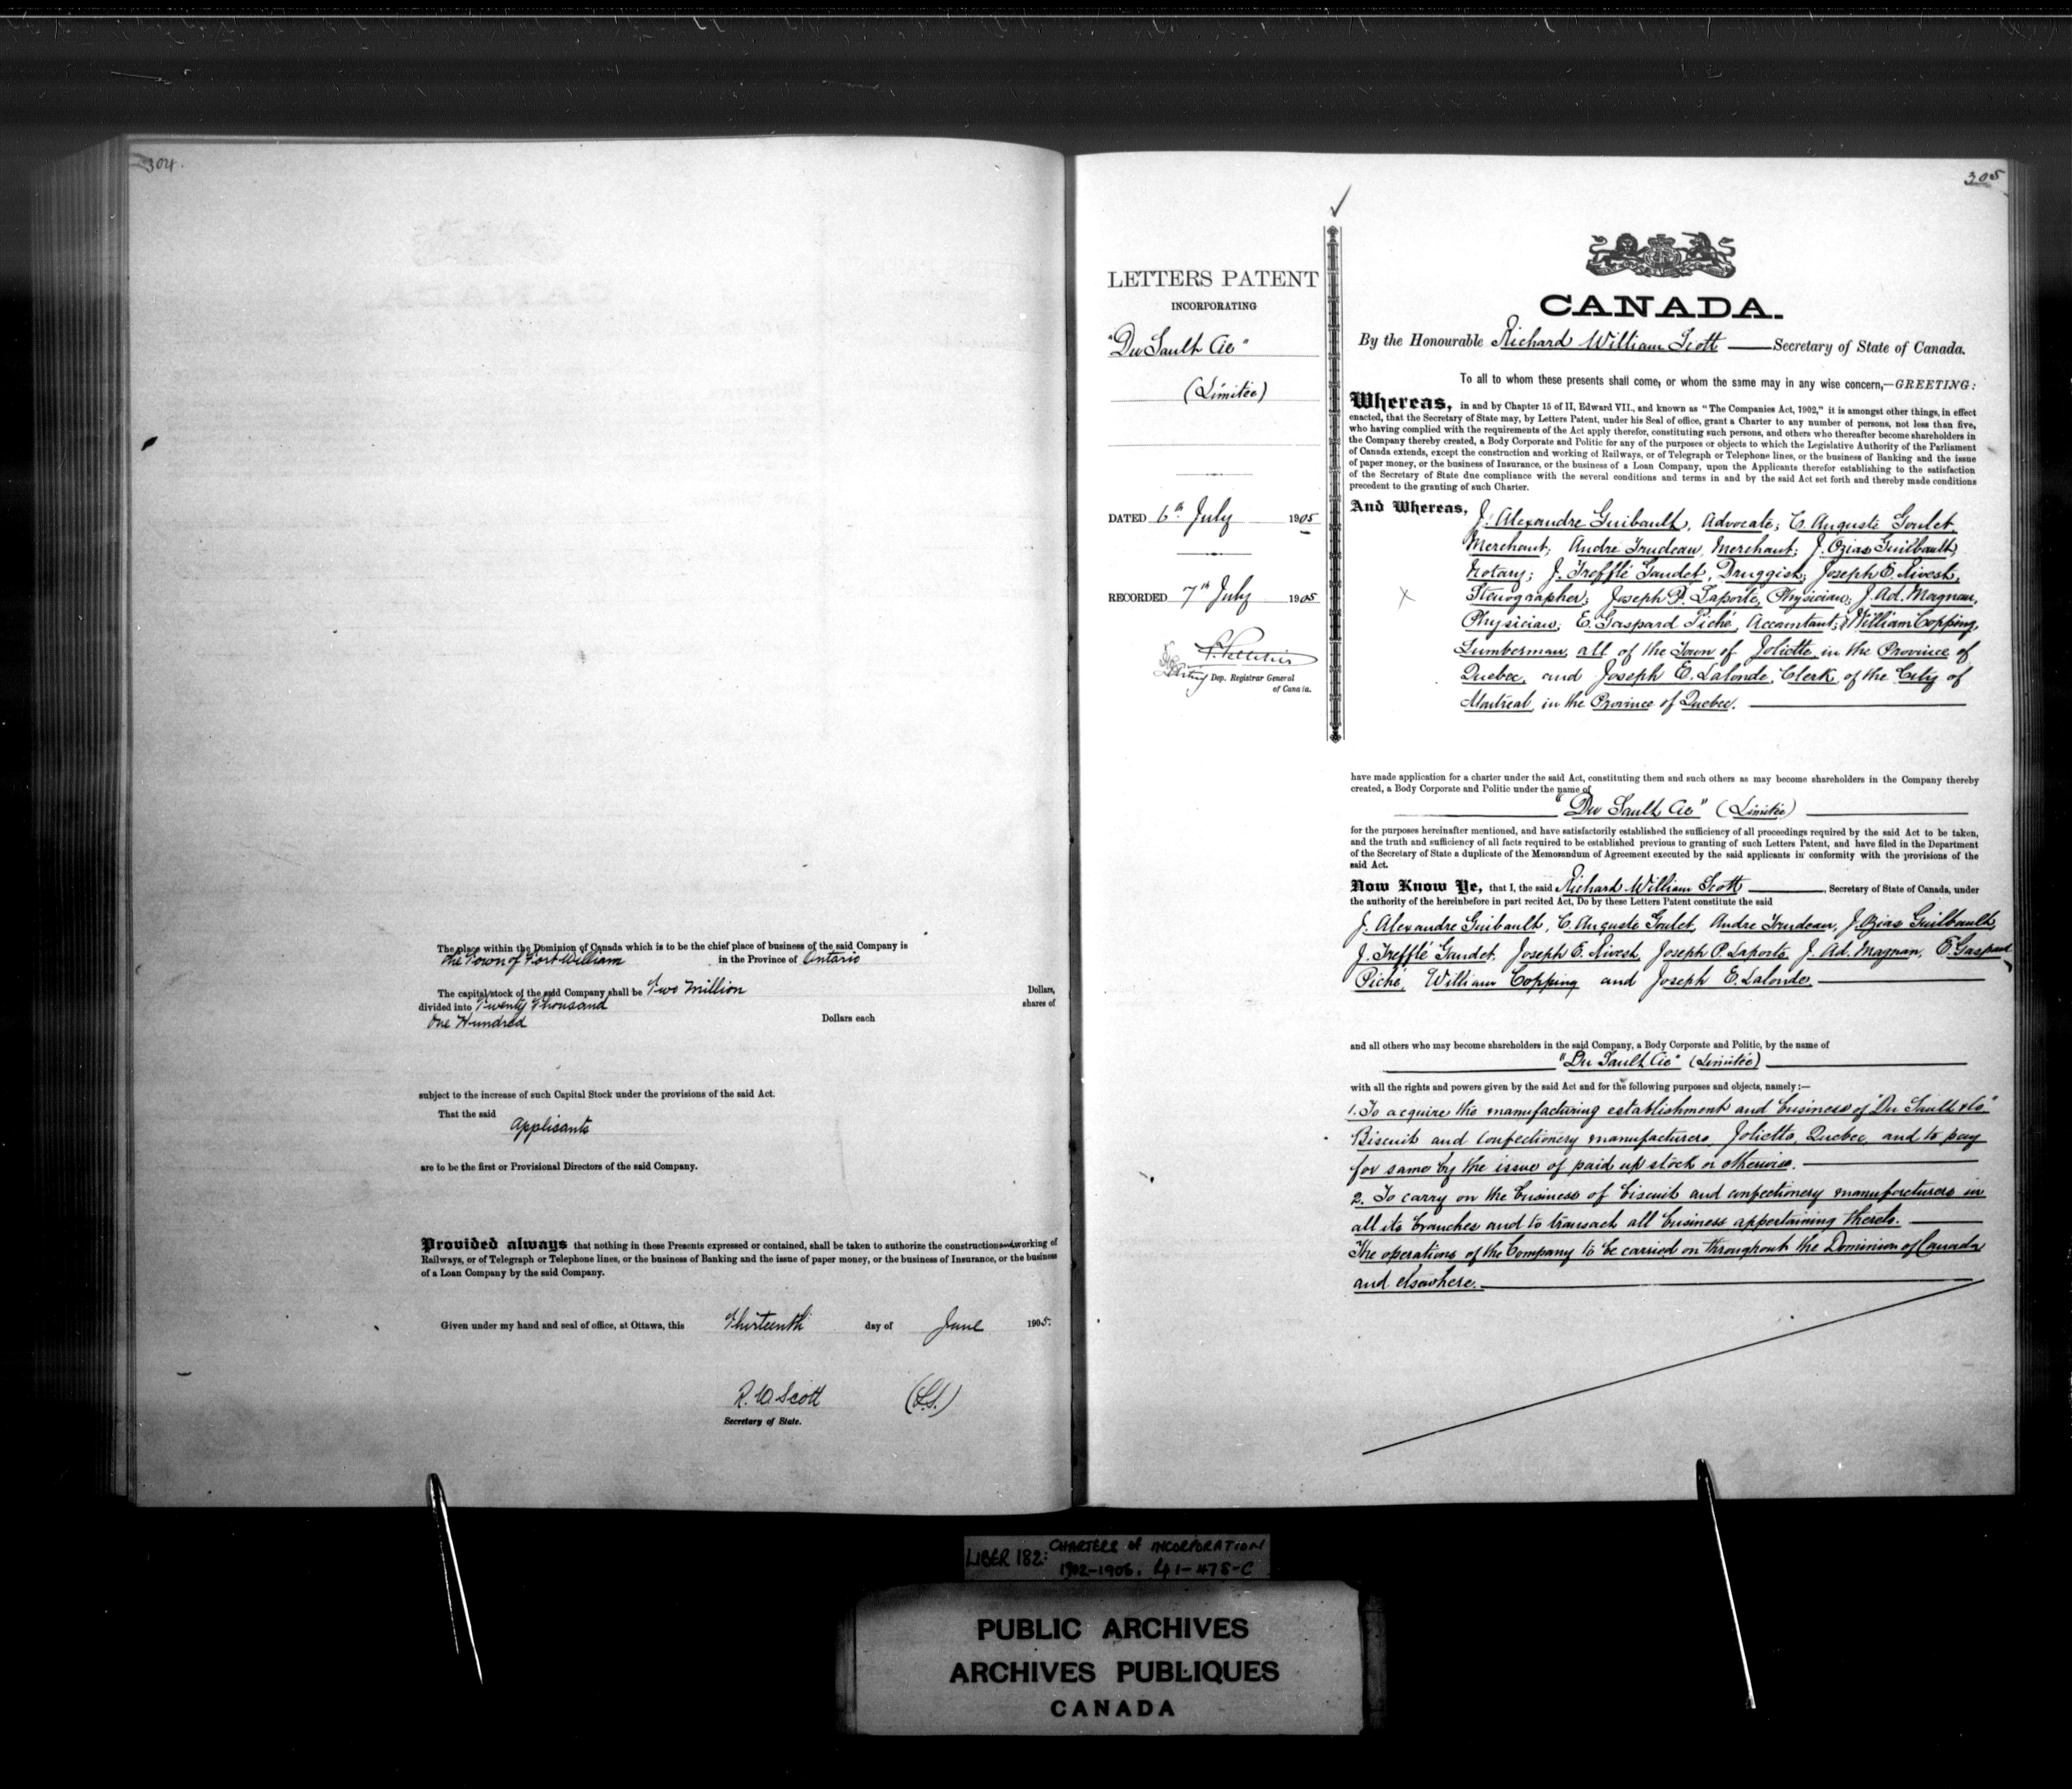 304.
The place within the Dominion of Canada which is to be the chief place of business of the said Company is
the Town of Fort William in the Province of Ontario
The capital stock of the said Company shall be Two Million Dollars,
divided into Twenty Thousand shares of
One Hundred Dollars each
subject to the increase of such Capital Stock under the provisions of the said Act.
That the said
Applicants
are to be the first or Provisional Directors of the said Company.
Provided always that nothing in these Presents expressed or contained, shall be taken to authorize the construction and working of
Railways, or of Telegraph or Telephone lines, or the business of Banking and the issue of paper money, or the business of Insurance, or the business
of a Loan Company by the said Company.
Given under my hand and seal of office, at Ottawa, this Thirteenth day of June 1905.
R. W. Scott (L.S.)
Secretary of State.
305
LETTERS PATENT
INCORPORATING
"Du Sault Cie"
(Limitée)
DATED 6th July 1905
RECORDED 7th July 1905
P. Pelletier
Dep. Registrar General
of Canada.
CANADA.
By the Honourable Richard William Scott Secretary of State of Canada.
To all to whom these presents shall come, or whom the same may in any wise concern,—GREETING:
Whereas, in and by Chapter 15 of II, Edward VII., and known as "The Companies Act, 1902," it is amongst other things, in effect
enacted, that the Secretary of State may, by Letters Patent, under his Seal of office, grant a Charter to any number of persons, not less than five,
who having complied with the requirements of the Act apply therefor, constituting such persons, and others who thereafter become shareholders in
the Company thereby created, a Body Corporate and Politic for any of the purposes or objects to which the Legislative Authority of the Parliament
of Canada extends, except the construction and working of Railways, or of Telegraph or Telephone lines, or the business of Banking and the issue
of paper money, or the business of Insurance, or the business of a Loan Company, upon the Applicants therefor establishing to the satisfaction
of the Secretary of State due compliance with the several conditions and terms in and by the said Act set forth and thereby made conditions
precedent to the granting of such Charter.
And Whereas, J. Alexandre Guibault, Advocate; C. Auguste Goulet,
Merchant; Andre Trudeau, Merchant; J. Ozias Guilbault,
Notary; J. Trefflé Gaudet, Druggist; Joseph E. Rivest,
Stenographer; Joseph P. Laporte, Physician; J. Ad. Magnan,
Physician; E. Gaspard Piché, Accountant; William Copping,
Lumberman, all of the Town of Joliette, in the Province of
Quebec, and Joseph E. Lalonde, Clerk, of the City of
Montreal, in the Province of Quebec.
have made application for a charter under the said Act, constituting them and such others as may become shareholders in the Company thereby
created, a Body Corporate and Politic under the name of
"Du Sault Cie" (Limitée)
for the purposes hereinafter mentioned, and have satisfactorily established the sufficiency of all proceedings required by the said Act to be taken,
and the truth and sufficiency of all facts required to be established previous to granting of such Letters Patent, and have filed in the Department
of the Secretary of State a duplicate of the Memorandum of Agreement executed by the said applicants in conformity with the provisions of the
said Act.
Now Know Ye, that I, the said Richard William Scott, Secretary of State of Canada, under
the authority of the hereinbefore in part recited Act, Do by these Letters Patent constitute the said
J. Alexandre Guibault, C. Auguste Goulet, Andre Trudeau, J. Ozias Guilbault,
J. Trefflé Gaudet, Joseph E. Rivest, Joseph P. Laporte, J. Ad. Magnan, E. Gaspard
Piché, William Copping and Joseph E. Lalonde,
and all others who may become shareholders in the said Company, a Body Corporate and Politic, by the name of
"Du Sault Cie" (Limitée)
with all the rights and powers given by the said Act and for the following purposes and objects, namely:—
1. To acquire the manufacturing establishment and business of "Du Sault & Co"
Biscuit and Confectionery manufacturers, Joliette, Quebec, and to pay
for same by the issue of paid up stock or otherwise.
2. To carry on the business of biscuit and confectionery manufacturers in
all its branches and to transact all business appertaining thereto.
The operations of the Company to be carried on throughout the Dominion of Canada
and elsewhere.
LIBER 182: CHARTERS of INCORPORATION
1902-1906. 41-475-C
PUBLIC ARCHIVES
ARCHIVES PUBLIQUES
CANADA